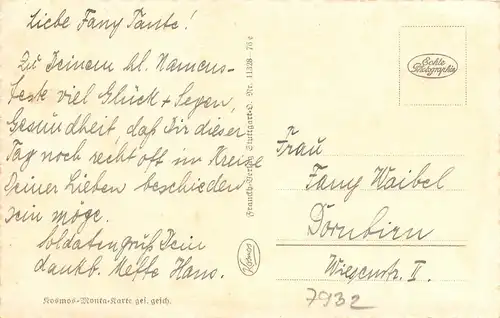 Liebe Fany Tante!
Zu Deinem hl. Namens-
feste viel Glück + Segen,
Gesundheit daß Dir dieser
Tag noch recht oft im Kreise
Deiner Lieben beschieden
sein möge.
Soldatengruß Dein
dankb. Neffe Hans.
Kosmos-Monta-Karte ges. gesch.
Franckh-Verlag, Stuttgart-O. Nr. 11328
Kosmos
Echte
Photographie
Frau
Fany Waibel
Dornbirn
II.
7932